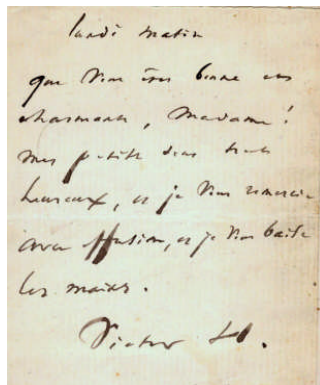 lundi matin
que vous êtes bonne et
charmante, Madame !
mes petits sont
heureux, et je vous remercie
avec effusion, et je vous baise
les mains.
Victor H.